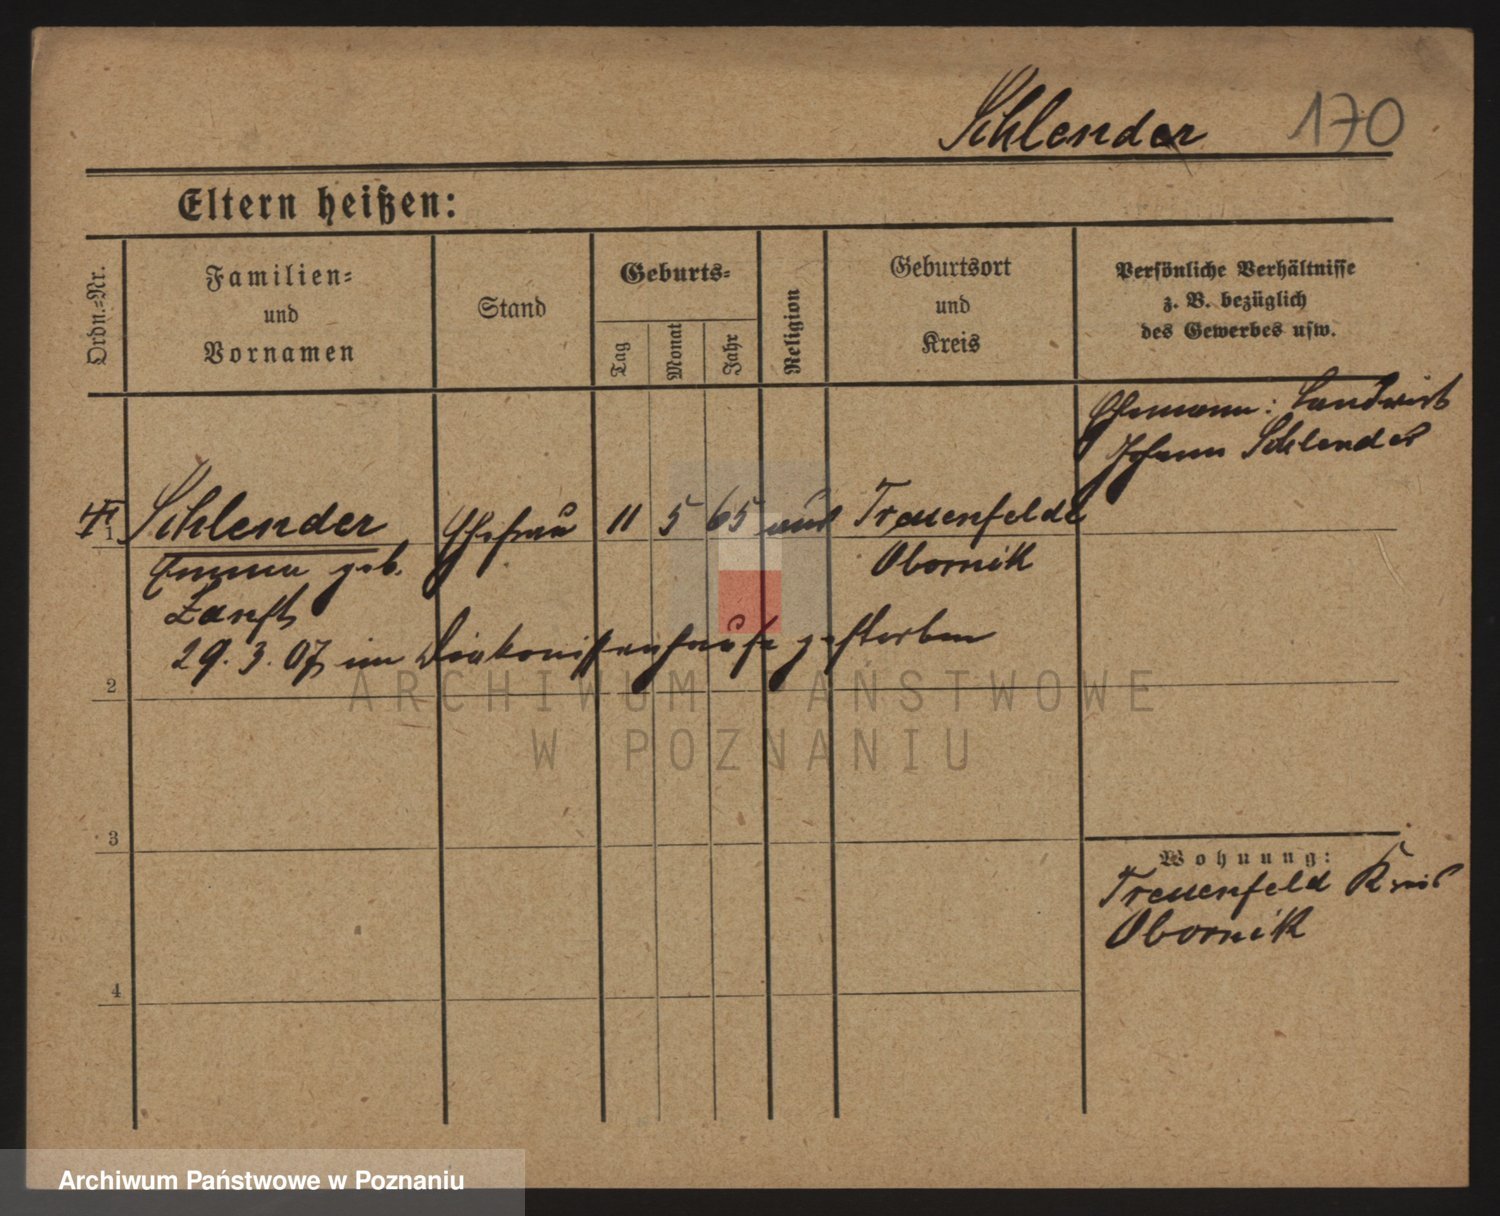 Schlender 170
Eltern heißen:
Ordn.-Nr.
Familien-
und
Vornamen
Stand
Geburts-
Tag
Monat
Jahr
Religion
Geburtsort
und
Kreis
Persönliche Verhältnisse
z. B. bezüglich
des Gewerbes usw.
Ehemann: Landwirt
Johann Schlender
1 Schlender Ehefrau 11 5 65 Treuenfelde
Emma geb. Obornik
Zanft
29. 3. 07 im Diakonissenhause gestorben
2
3
4
Wohnung:
Treuenfeld Kreis
Obornik
ARCHIWUM PAŃSTWOWE
W POZNANIU
Archiwum Państwowe w Poznaniu